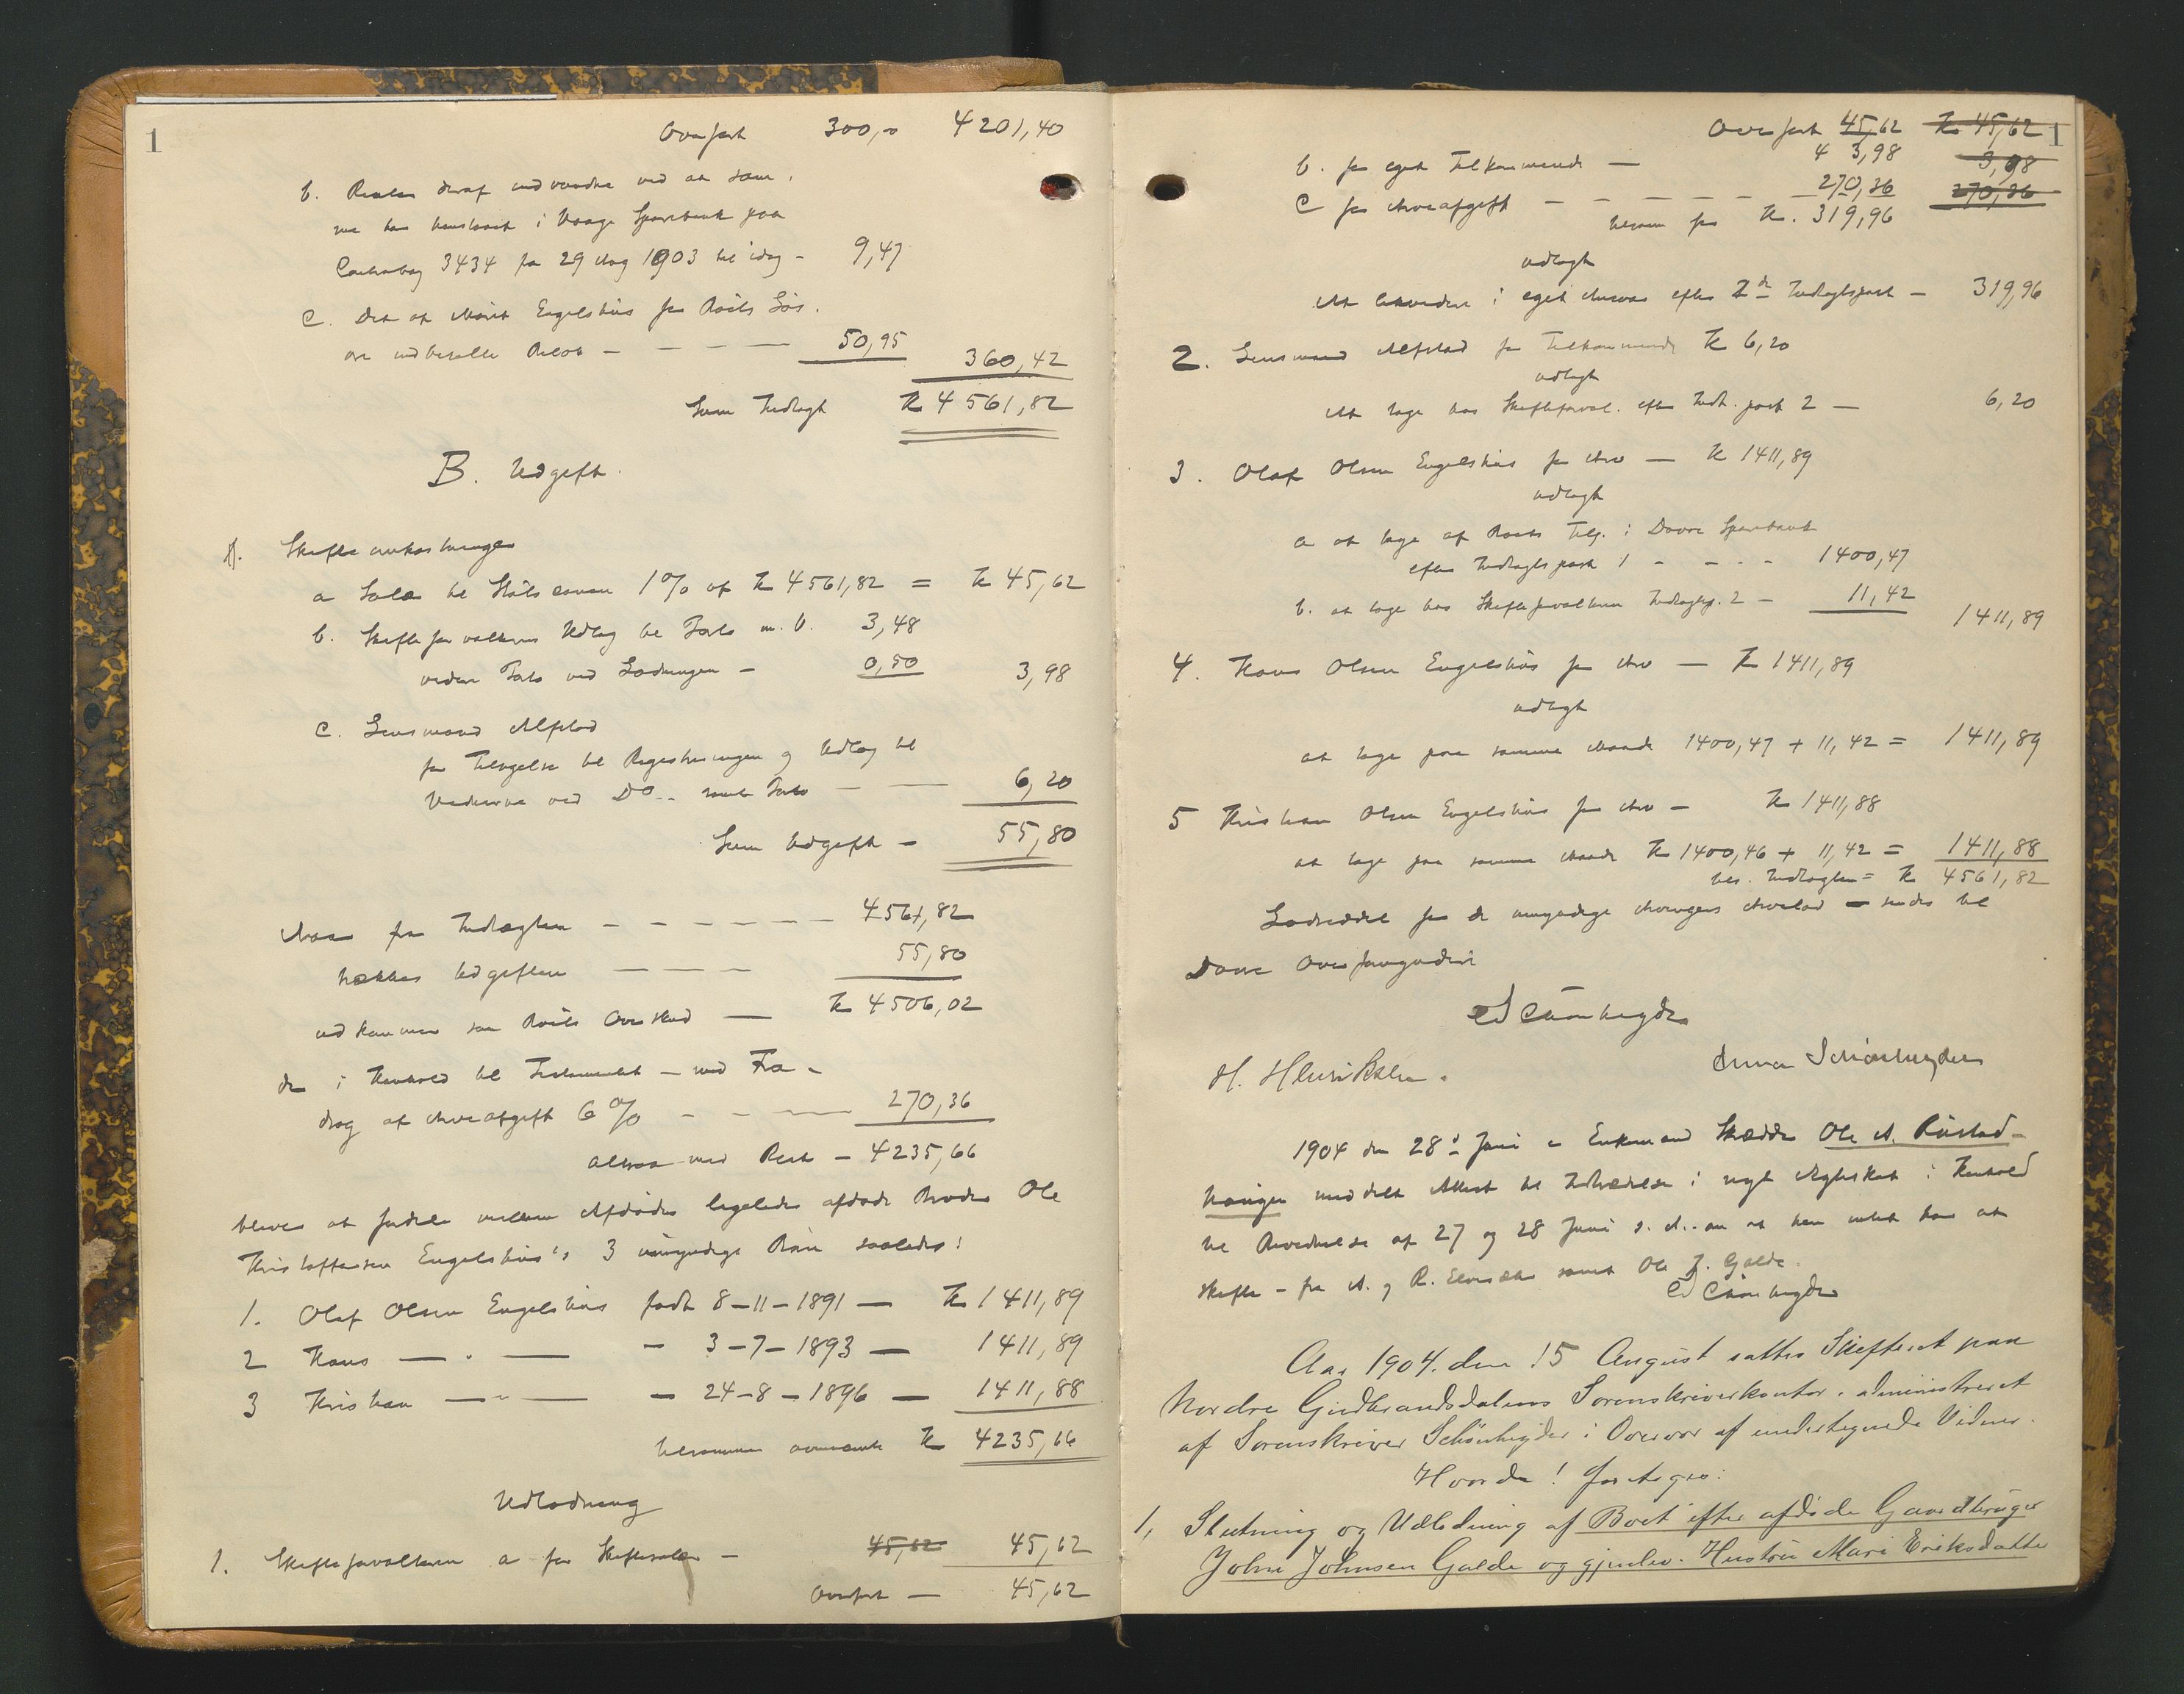 1
Overført 300,00 4201,40
b. Renter deraf indvundne ved at
i Vaage Sparebank paa
3434 fra 29 Aug 1903 til idag - 9,47
C. Det af Marit Engelshus for Boets Løs-
øre indbetalte Beløb - 50,95
360,42
Sum Indtægt Kr 4561,82
B. Udgift.
1. Skifteomkostninger
a Salær til Statskassen 1% af Kr 4561,82 = Kr 45,62
b. Skifteforvalterens Udlæg til Porto m.v. 3,48
videre Porto ved Lodningen - 0,50 3,98
C. Lensmand Alfstad
for Tilsigelse til Registreringen og Udlæg til
Vidnerne ved Do.. samt Porto - 6,20
Sum Udgift - 55,80
Naar fra Indtægten - 4561,82
trækkes Udgiften - 55,80
udkommer som Boets Overskud - Kr 4506,02
der i Henhold til Testamentet - med Fra-
drag af Arveafgift 6% - 270,36
altsaa med Rest - 4235,66
bliver at fordele mellem Afdødes ligeledes afdøde Broder Ole
Kristoffersen Engelshus's 3 umyndige Børn saaledes:
1. Olaf Olsen Engelshus født 8-11-1891 - Kr 1411,89
2 Hans - " - - 3-7-1893 - 1411,89
3 Kristian - " - - 24-8-1896 - 1411,88
tilsammen ovennævnte Kr 4235,66
Udlodning
1. Skifteforvalteren a for Skiftesalær - 45,62 45,62
Overført - 45,62
1
Overført 45,62 Kr 45,62
b. for eget Tilkommende - 3,98 3,98
C for Arveafgift - 270,36 270,36
tilsam for Kr. 319,96
udlagt
At i eget Ansvar efter 2de Indtægtspost - 319,96
2. Lensmand Alfstad for Tilkommende Kr 6,20
udlagt
At tage hos Skifteforval. efter Indt. post 2 - 6,20
3. Olaf Olsen Engelshus for Arv - Kr 1411,89
udlagt
a at tage af Boets Tilg. i Dovre Sparebank
efter Indtægtspost 1 - 1400,47
b. at tage hos Skifteforvalteren Indtægtsp. 2 - 11,42
1411,89
4. Hans Olsen Engelshus for Arv - Kr 1411,89
udlagt
at tage paa samme Maade 1400,47 + 11,42 = 1411,89
5 Kristian Olsen Engelshus for Arv - Kr 1411,88
at tage paa samme Maade Kr 1400,46 + 11,42 = 1411,88
Indtægten = Kr 4561,82
Lodseddel for de umyndige Arvingers Arvelod - sendes til
Dovre Overformynderi
Ed Schønheyder
H. Henriksen. Anna Schønheyder
1904 den 28d Juni er Enkemand Skrædder Ole A. Rustad-
haugen meddelt Attest til Indtrædelse i nyt Ægteskab i Henhold
til Bevidnelse af 27 og 28 Juni d. A. om at han intet har at
skifte - fra A. og R. samt Ole J. Galde.
Ed Schønheyder
Aar 1904. den 15 August sattes Skifteret paa
Nordre Gudbrandsdalens Sorenskriverkontor, administreret
af Sorenskriver Schønheyder i Overvær af undertegnede Vidner.
Hvorda! foretoges:
1, Slutning og Udlodning af Boet efter afdøde Gaardbruger
John Johnsen Galde og gjenlev. Hustru Mari Eriksdatter